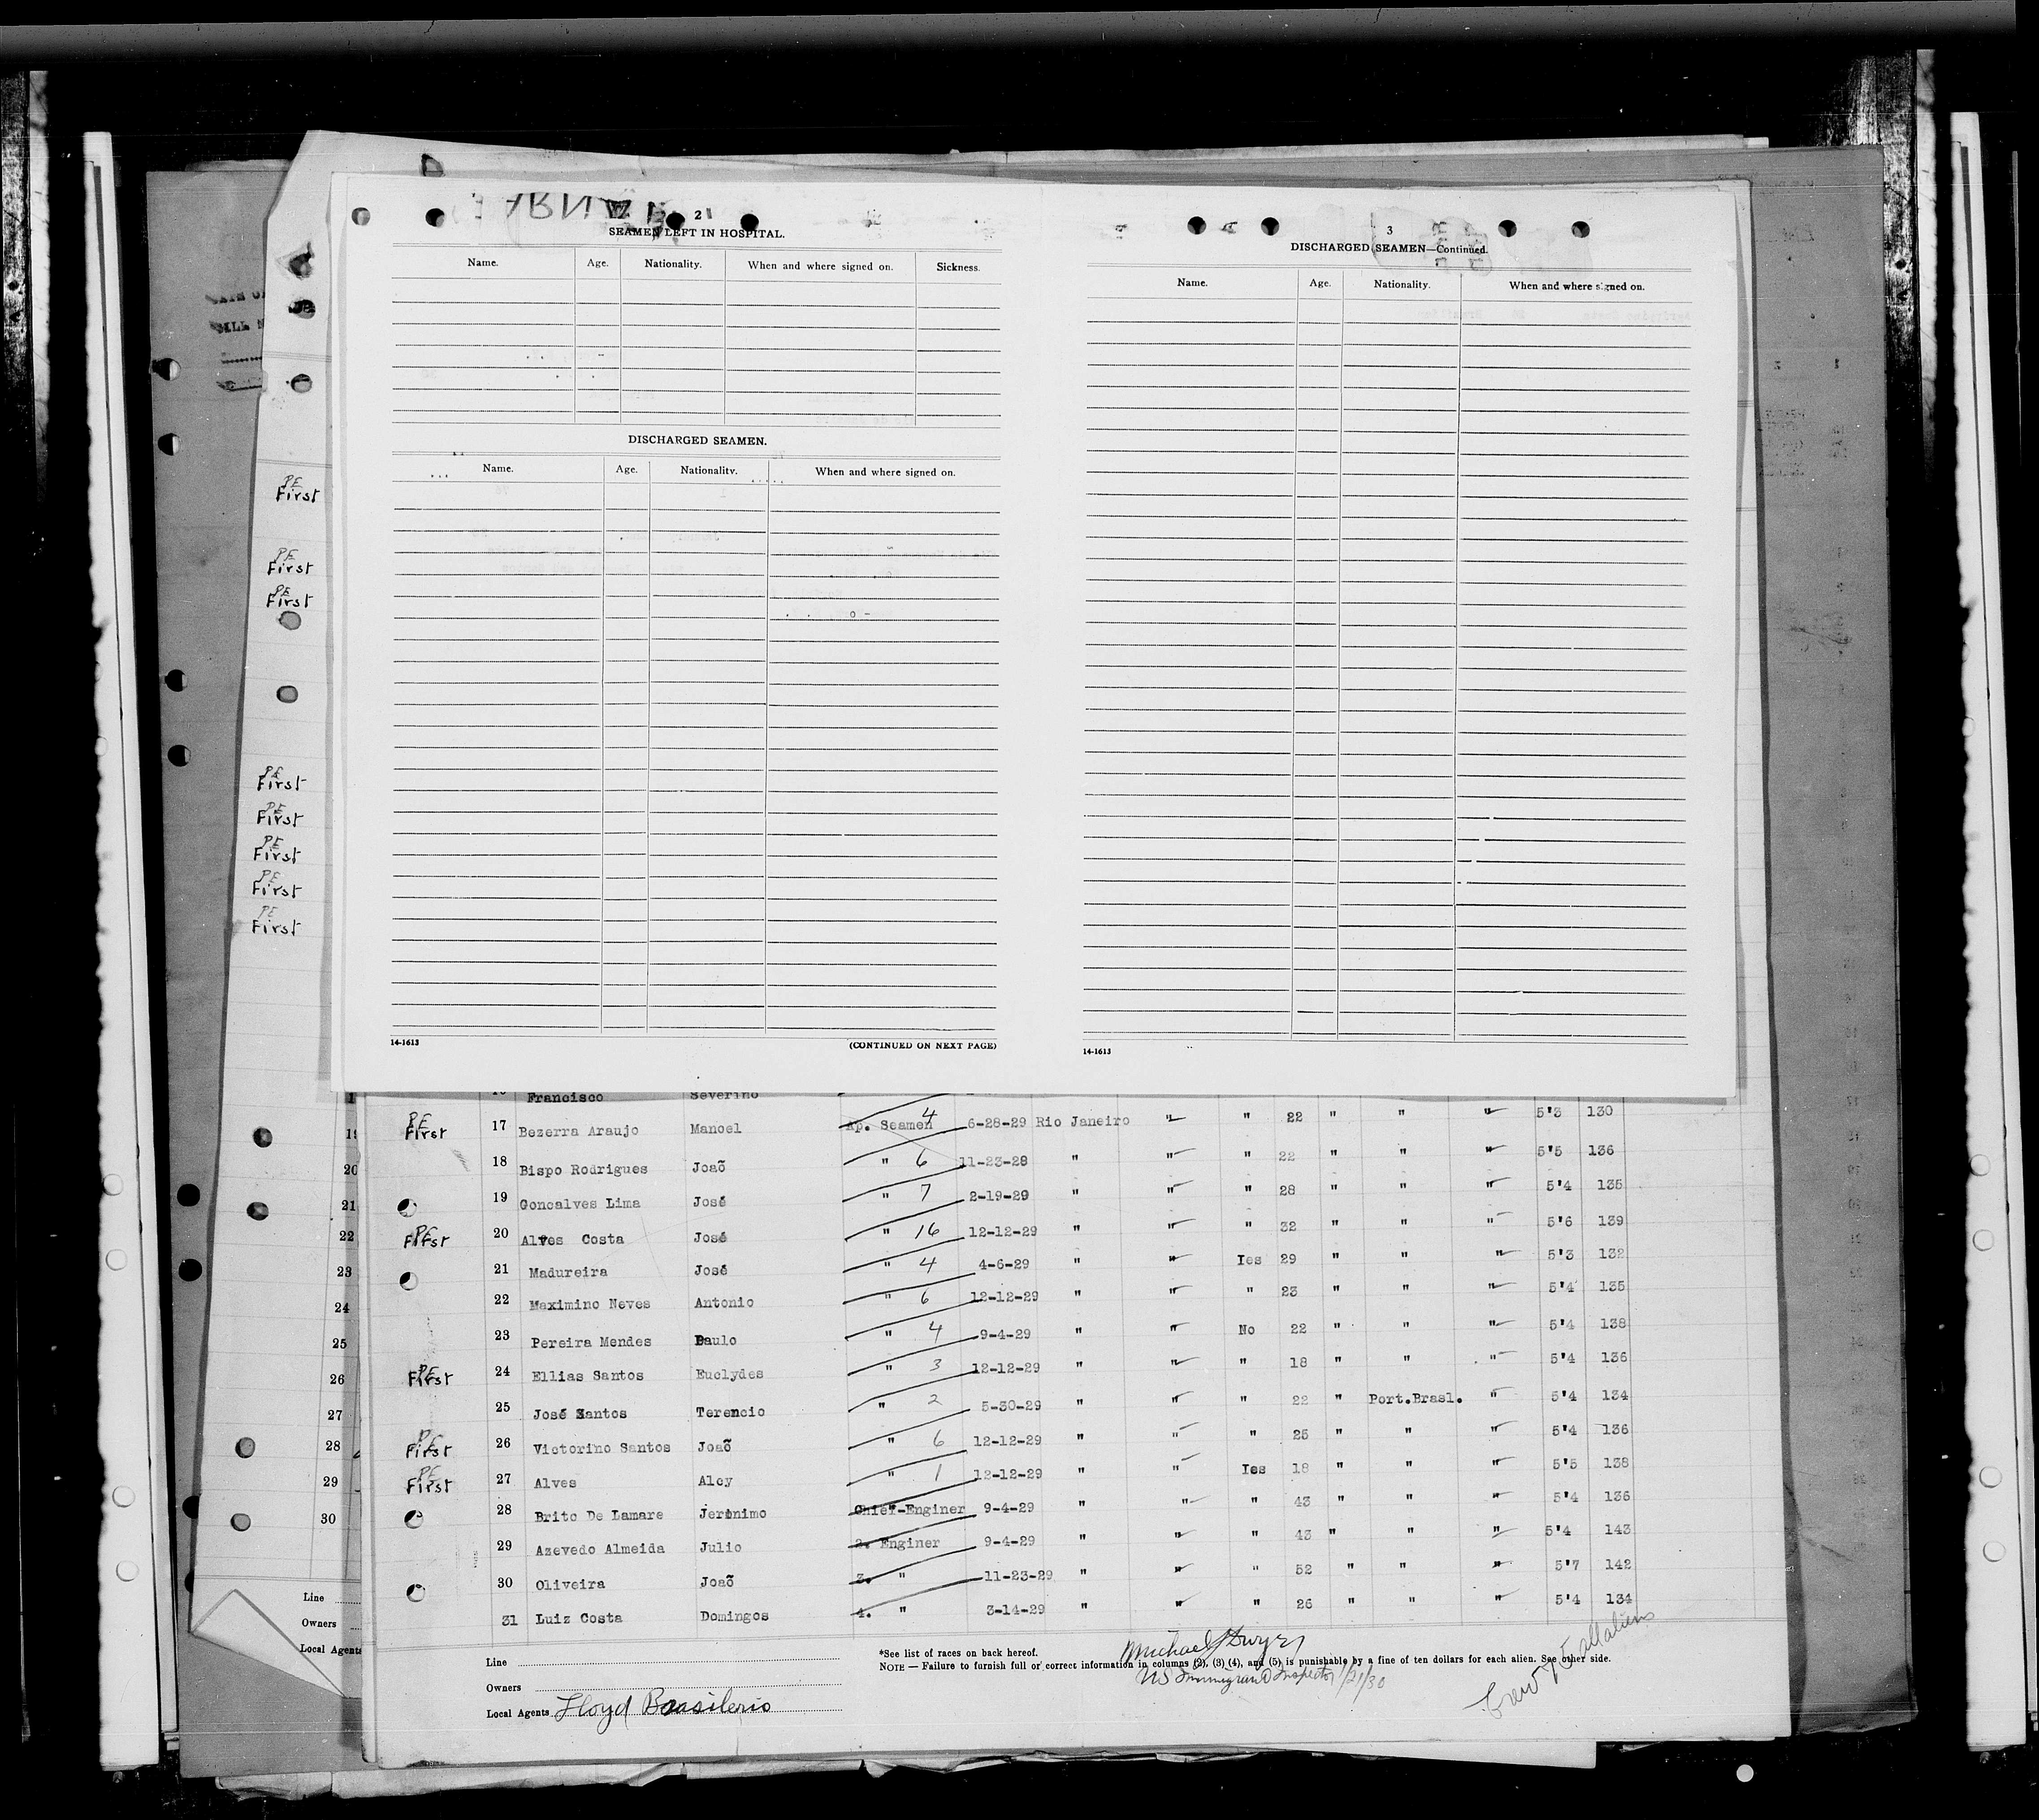 2
SEAMEN LEFT IN HOSPITAL.
Name. Age. Nationality. When and where signed on. Sickness.
DISCHARGED SEAMEN.
Name. Age. Nationality. When and where signed on.
14-1613 (CONTINUED ON NEXT PAGE)
3
DISCHARGED SEAMEN—Continued.
Name. Age. Nationality. When and where signed on.
14-1613
PE First
PE First
PE First
PE First
PE First
PE First
PE First
PE First
20
21
22
23
24
25
26
27
28
29
30
Line
Owners
Local Agents
Francisco Severino
PE First 17 Bezerra Araujo Manoel Ap. Seamen 4 6-28-29 Rio Janeiro " " 22 " " " 5'3 130
18 Bispo Rodrigues Joaõ " 6 11-23-28 " " " 22 " " " 5'5 136
19 Goncalves Lima José " 7 2-19-29 " " " 28 " " " 5'4 135
PE First 20 Alves Costa José " 16 12-12-29 " " " 32 " " " 5'6 139
21 Madureira José " 4 4-6-29 " " Ies 29 " " " 5'3 132
22 Maximino Neves Antonio " 6 12-12-29 " " " 23 " " " 5'4 135
23 Pereira Mendes Paulo " 4 9-4-29 " " No 22 " " " 5'4 138
PE First 24 Ellias Santos Euclydes " 3 12-12-29 " " " 18 " " " 5'4 136
25 José Santos Terencio " 2 5-30-29 " " " 22 " Port.Brasl. " 5'4 134
PE First 26 Victorino Santos Joaõ " 6 12-12-29 " " " 25 " " " 5'4 136
PE First 27 Alves Alcy " 1 12-12-29 " " Ies 18 " " " 5'5 138
28 Brito De Lamare Jeronimo Chief-Enginer 9-4-29 " " " 43 " " " 5'4 136
29 Azevedo Almeida Julio 2. Enginer 9-4-29 " " " 43 " " " 5'4 143
30 Oliveira Joaõ 3. " 11-23-29 " " " 52 " " " 5'7 142
31 Luiz Costa Domingos 4. " 3-14-29 " " " 26 " " " 5'4 134
Line
Owners
Local Agents Lloyd Brasilerio
*See list of races on back hereof.
NOTE — Failure to furnish full or correct information in columns (2), (3) (4), and (5) is punishable by a fine of ten dollars for each alien. See other side.
Michael J Dwyer
US Immigrant Inspector 1/21/30
Crew 75 all aliens